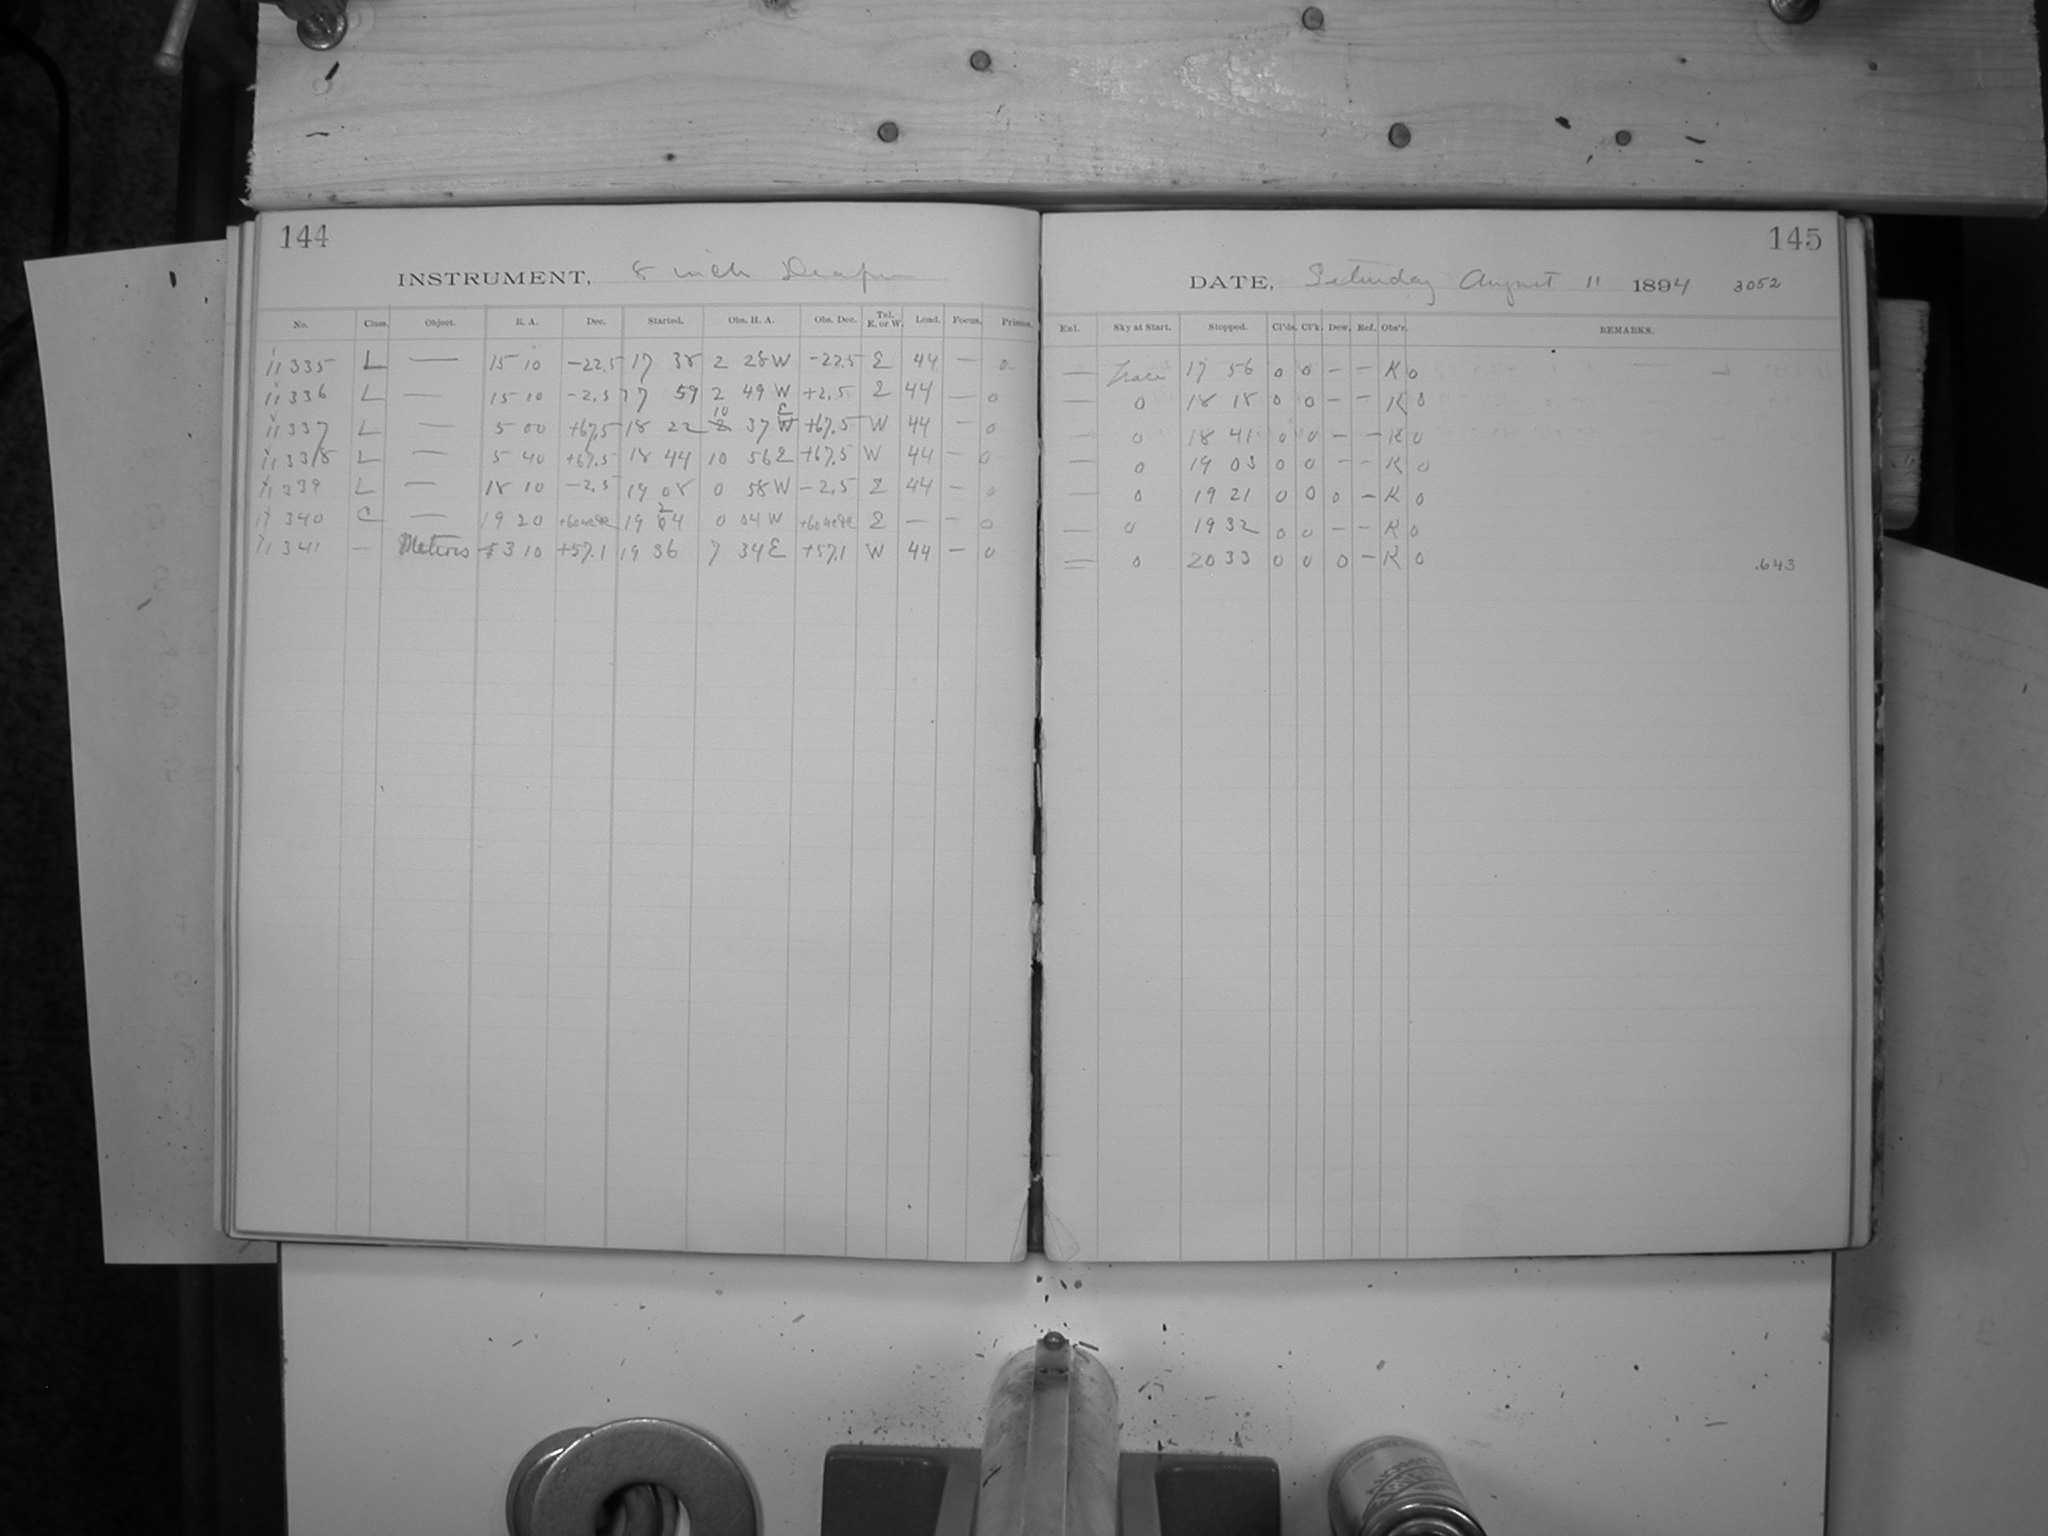 144
INSTRUMENT, 8 inch Draper
No. Class. Object. R. A. Dec. Started. Obs. H. A. Obs. Dec. Tel. E. or W. Load. Focus. Prisms.
11335 L — 15 10 -22.5 17 38 2 28 W -22.5 E 44 — 0
11336 L — 15 10 -2.5 17 59 2 49 W +2.5 E 44 — 0
11337 L — 5 00 +67.5 18 22 10 37 E +67.5 W 44 — 0
11338 L — 5 40 +67.5 18 44 10 56 E +67.5 W 44 — 0
11339 L — 18 10 -2.5 19 08 0 58 W -2.5 E 44 — 0
11340 C — 19 20 19 24 0 04 W E — — 0
11341 — Meteors 3 10 +57.1 19 36 7 34 E +57.1 W 44 — 0
145
DATE, Saturday August 11 1894 3052
Enl. Sky at Start. Stopped. Cl'ds. Cl'k. Dew. Ref. Obs'r. REMARKS.
— Trace 17 56 0 0 — — K 0
— 0 18 18 0 0 — — K 0
— 0 18 41 0 0 — — K 0
— 0 19 03 0 0 — — K 0
— 0 19 21 0 0 0 — K 0
— 0 19 32 0 0 — — K 0
— 0 20 33 0 0 0 — K 0 .643